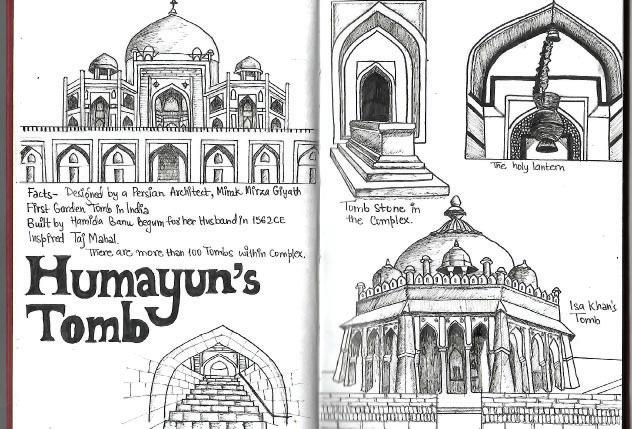 Facts- Designed by a Persian Architect, Mirak Mirza Giyath
First Garden Tomb in India
Built by Hamida Banu Begum for her Husband in 1562 CE
Inspired Taj Mahal.
There are more than 100 Tombs within Complex.
Humayun's
Tomb
Tomb Stone in
the Complex.
The holy lantern
Isa Khan's
Tomb